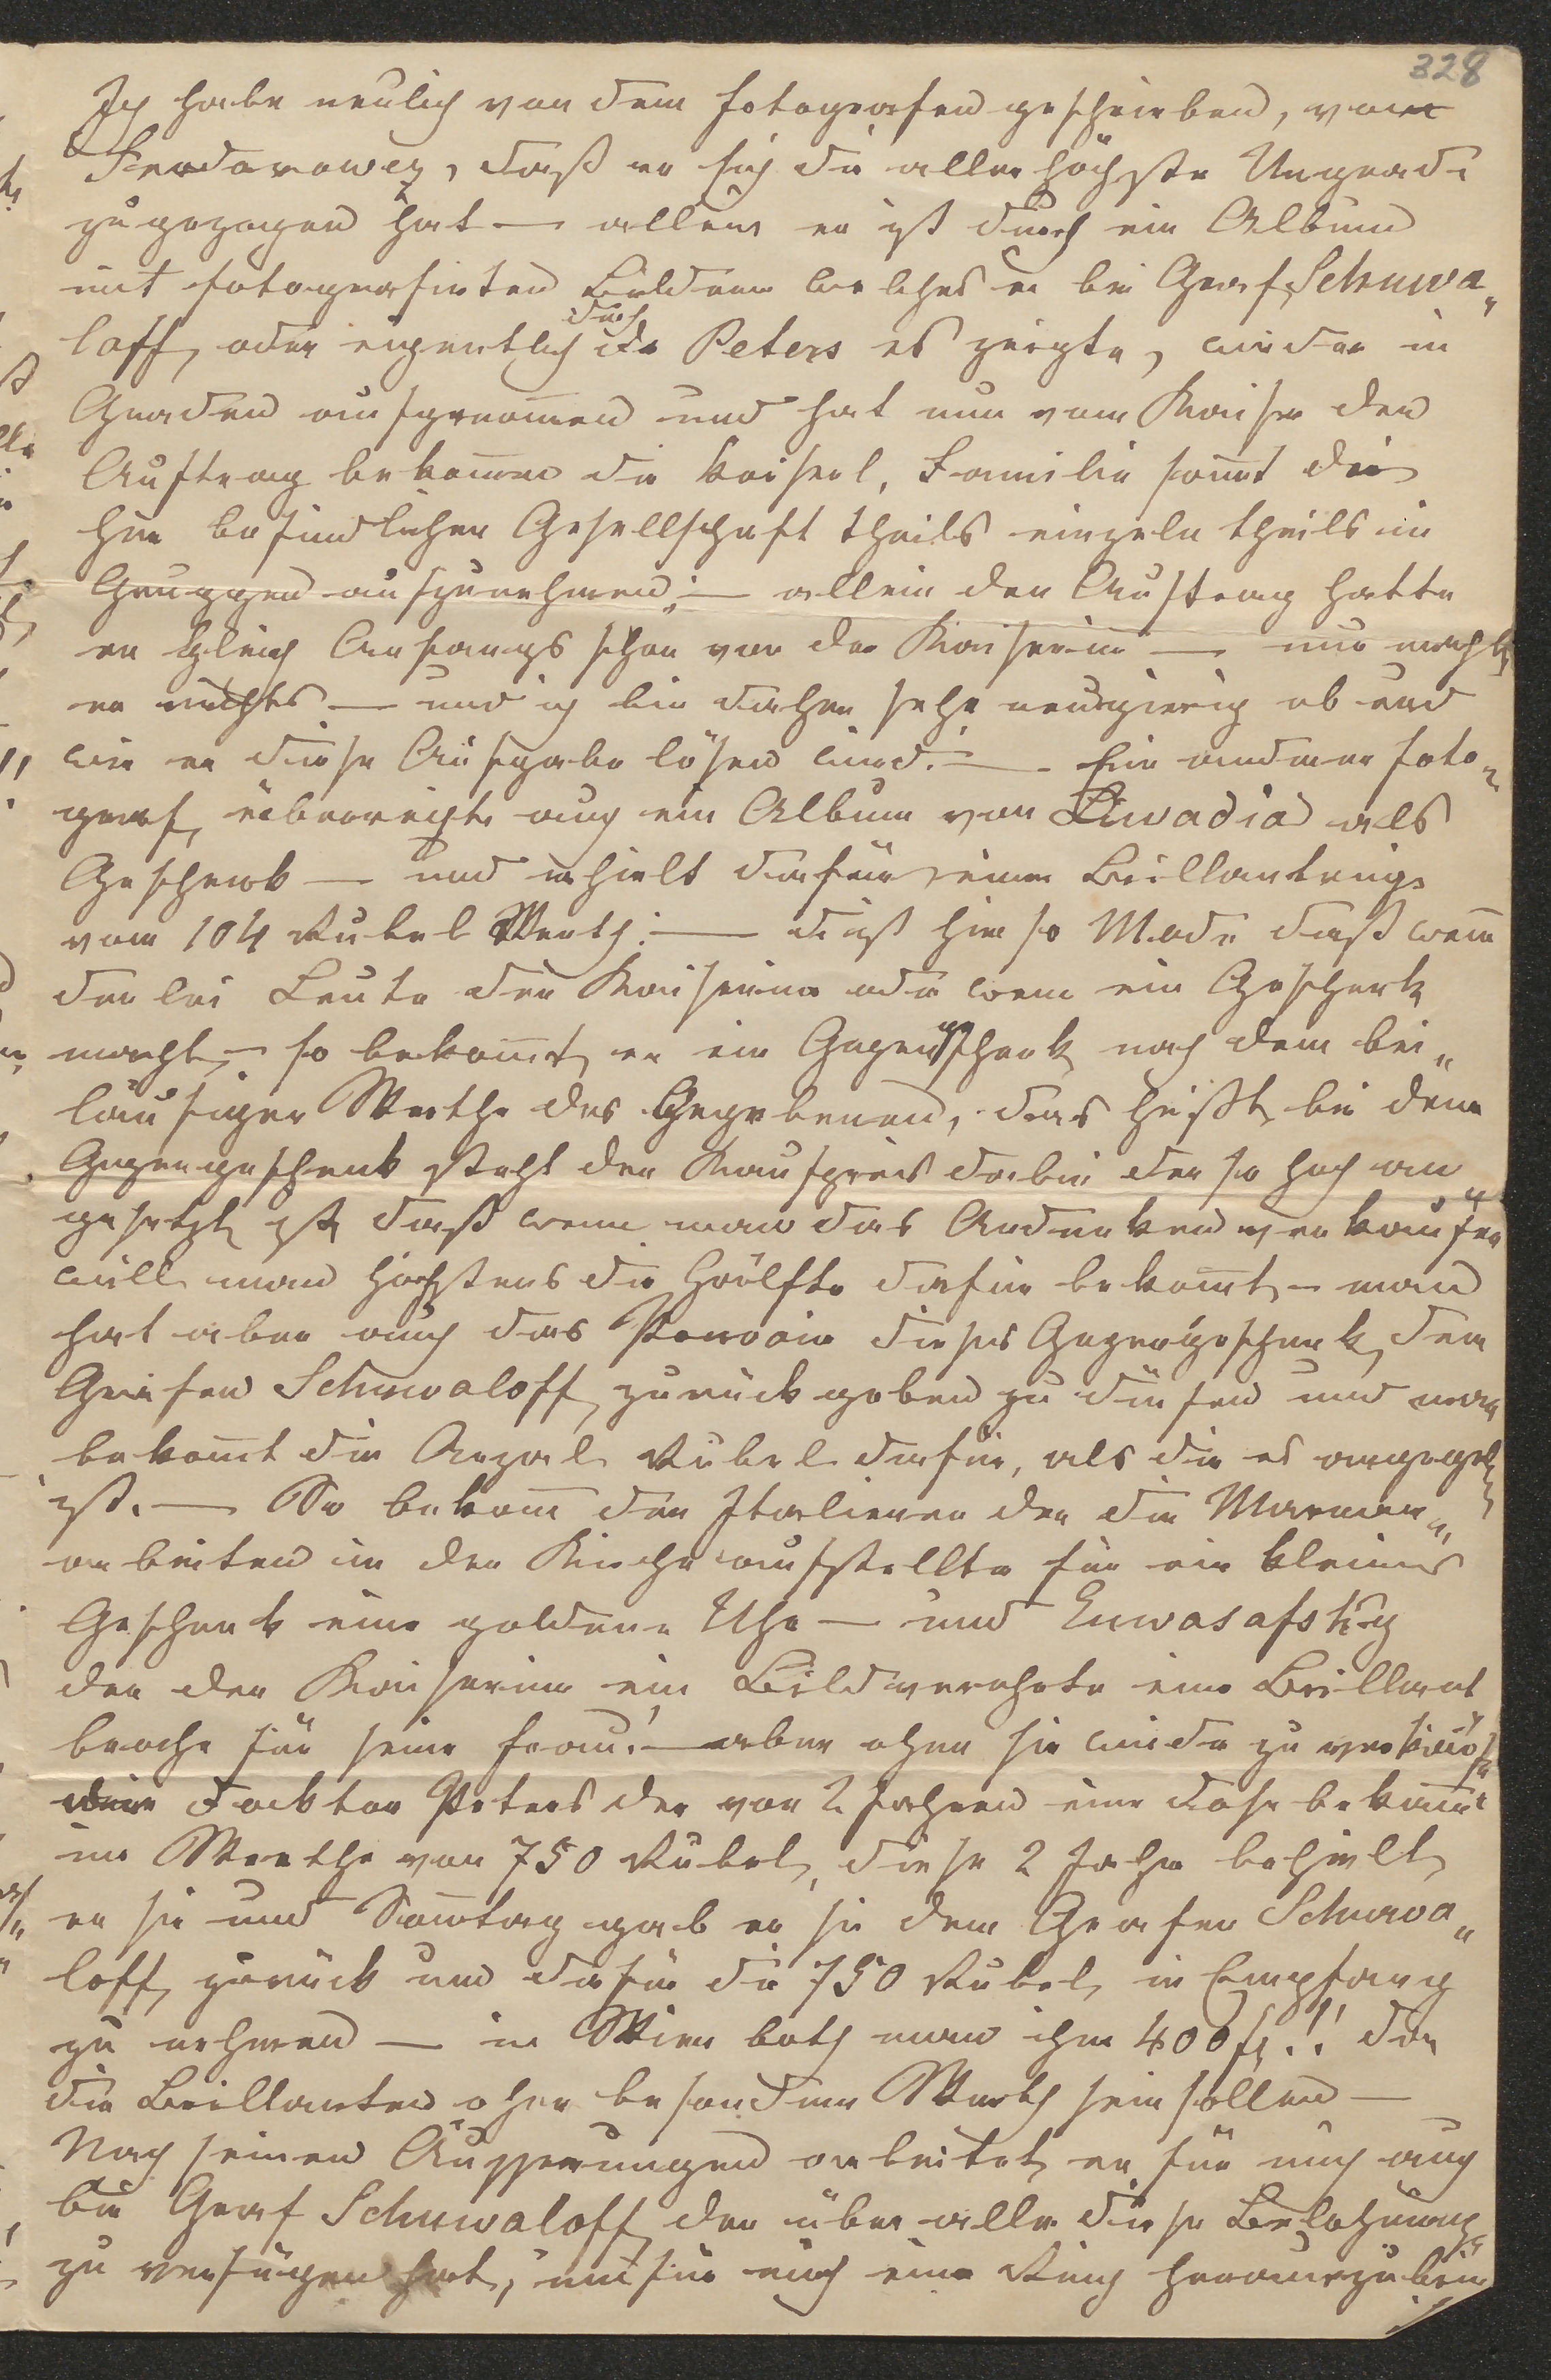 328
Ich habe neulich von dem Fotografen geschrieben, vom
Feodorowez, daß er sich die allerhöchste Ungnade
zugezogen hat — allein er ist durch ein Album
mit fotografirten Bildern welches er bei Graf Schuwa„
loff, oder eigentlich durch Dr Peters es zeigte, wieder in
Gnaden aufgenom̄en und hat nun vom Kaiser den
Auftrag bekom̄en die kaiserl. Familie sam̄t der
hier befindlichen Gesellschaft theils einzeln theils in
Gruppen aufzunehmen; — allein den Auftrag hatte
er gleich Anfangs schon von der Kaiserin — nur macht
er nichts — und ich bin daher sehr neugierig ob und
wie er diese Aufgabe lösen wird. — Ein anderer Foto„
graf, überreichte auch ein Album von Liwadia als
Geschenk — und erhielt dafür einen Brillantring
vom 104 Rubel Werth. — Es ist hier so Mode daß wenn
derlei Leute der Kaiserin oder wem ein Geschenk
macht, — so bekom̄t er ein Gegengeschenk nach dem bei„
läufigen Werthe des Gegebenen, das heißt bei dem
Gegengeschenk steht der Kaufpreis dabei der so hoch an„
gesetzt ist, daß wenn man das Andenken verkaufen
will man höchstens die Hälfte dafür bekom̄t, — man
hat aber auch das dieses Gegengeschenk, dem
Grafen Schuwaloff, zurückgeben zu dürfen und man
bekom̄t die Anzal Rubel dafür, als die es angegeben
ist. — So bekam der Italiener der die Marmor„
arbeiten in der Kirche aufstellte für ein kleines
Geschenk eine goldene Uhr — und
der der Kaiserin ein Bild verehrte eine Brillant
broche für seine Frau! — aber ohne sie wieder zu verkaufen
Docktor Peters der vor 2 Jahren eine Dose bekam
im Werthe von 750 Rubel, diese 2 Jahre behielt
er sie und Som̄tag gab er sie dem Grafen Schuwa„
loff, zurück um dafür die 750 Rubel, in Empfang
zu nehmen — in Wien both man ihm 400 fl.!! da
die Brillanten ohne besondern Werth sein sollen —
Nach seinen Äusserungen arbeitet er für mich auch
bei Graf Schuwaloff, der über alle diese Belohnung„
zu verfügen hat, um für mich eine Ring herauszubrin„